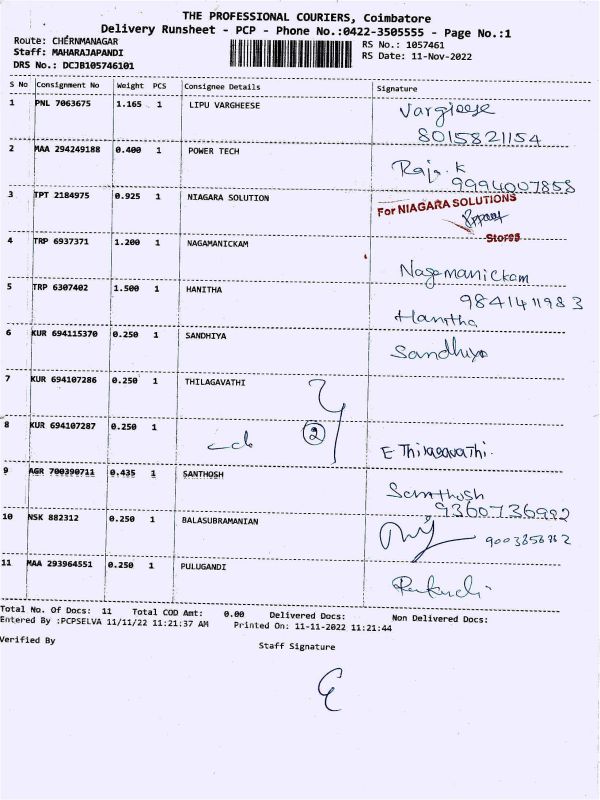 THE PROFESSIONAL COURIERS, Coimbatore
Delivery Runsheet - PCP - Phone No.:0422-3505555 - Page No.:1
Route: CHERNMANAGAR
Staff: MAHARAJAPANDI
DRS No.: DCJB105746101
RS No.: 1057461
RS Date: 11-Nov-2022
S No Consignment No Weight PCS Consignee Details Signature
1 PNL 7063675 1.165 1 LIPU VARGHEESE
Vargheese
8015821154
2 MAA 294249188 0.400 1 POWER TECH
Raja. K
9994007858
3 TPT 2184975 0.925 1 NIAGARA SOLUTION
For NIAGARA SOLUTIONS
Stores
4 TRP 6937371 1.200 1 NAGAMANICKAM
Nagamanickam
9841411983
5 TRP 6307402 1.500 1 HANITHA
Hanitha
6 KUR 694115370 0.250 1 SANDHIYA
Sandhiya
7 KUR 694107286 0.250 1 THILAGAVATHI
8 KUR 694107287 0.250 1
2
E Thilagavathi.
9 AGR 700390711 0.435 1 SANTHOSH
Santhosh
9360736992
10 NSK 882312 0.250 1 BALASUBRAMANIAN
11 MAA 293964551 0.250 1 PULUGANDI
Total No. Of Docs: 11 Total COD Amt: 0.00 Delivered Docs: Non Delivered Docs:
Entered By :PCPSELVA 11/11/22 11:21:37 AM Printed On: 11-11-2022 11:21:44
Verified By
Staff Signature